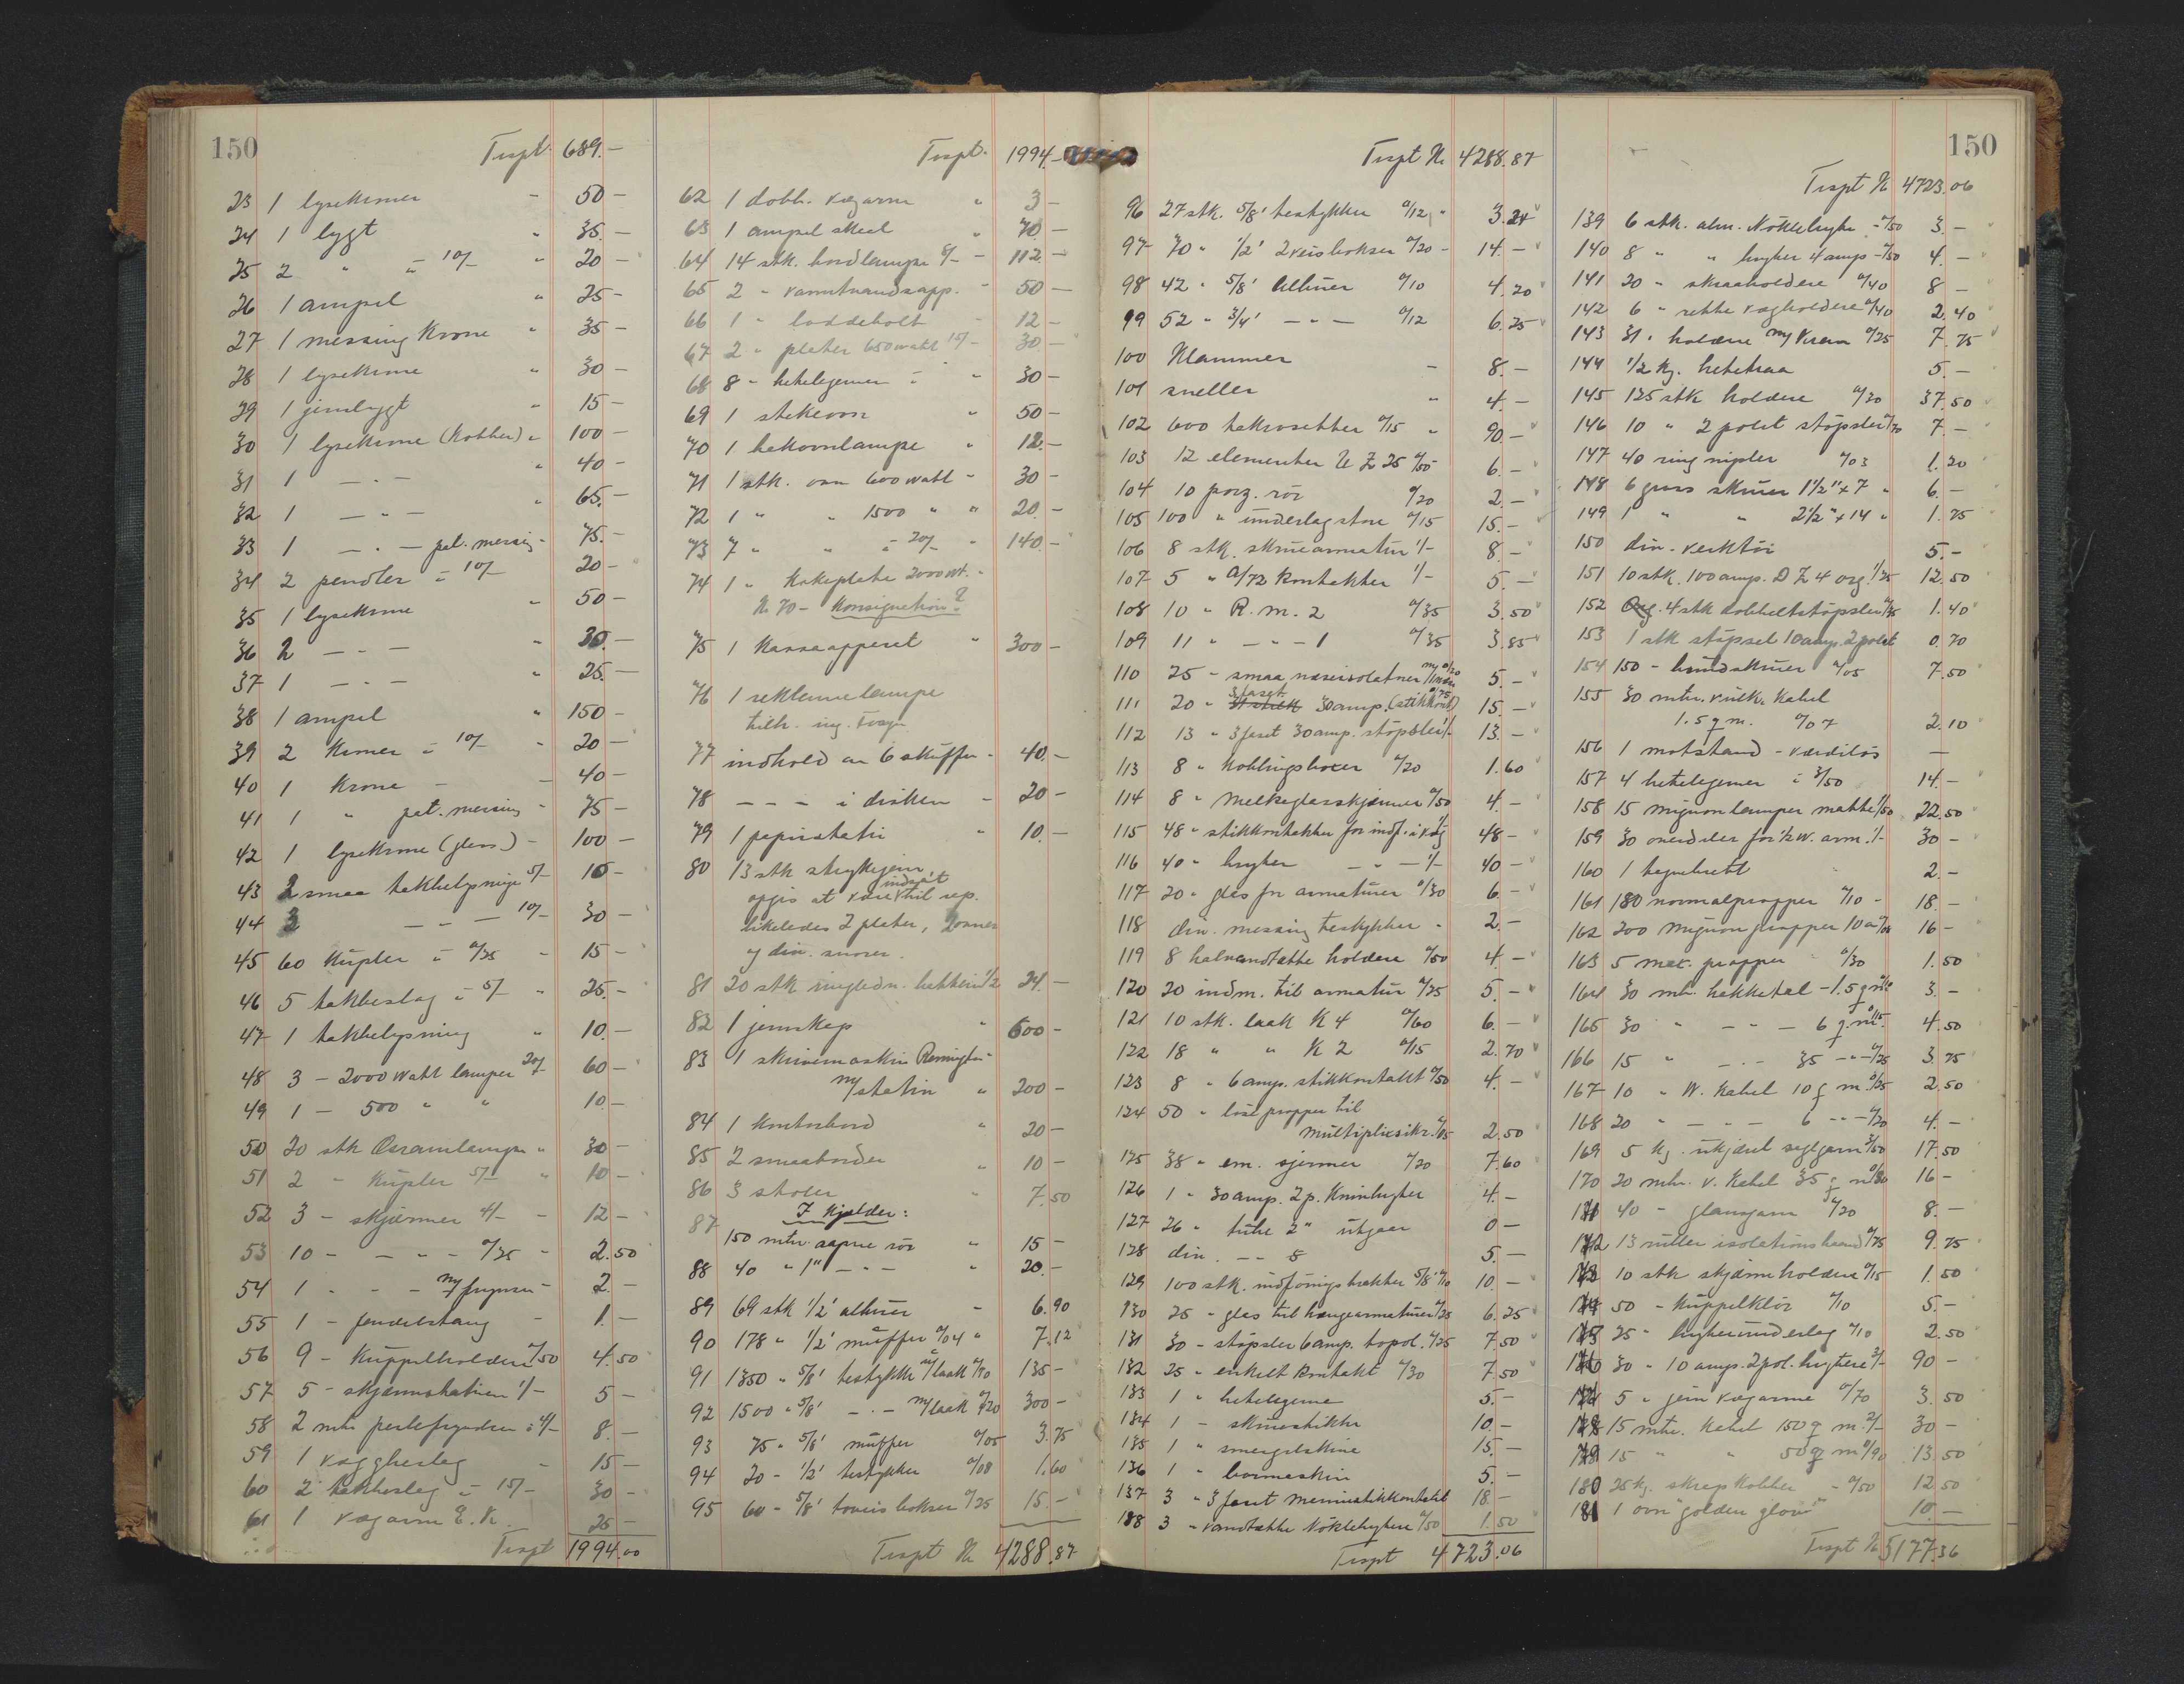 150
Trspt. 689.-
23 1 lysekrone " 50-
24 1 lygt " 35.-
25 2 " à 10/- " 20-
26 1 ampel " 25-
27 1 messing krone " 35-
28 1 lysekrone " 30-
29 1 jernlygt " 15-
30 1 lysekrone (kobber) " 100-
31 1 - " - " 40-
32 1 - " - " 65.-
33 1 - " - pol. messing - 75.-
34 2 pendler à 10/- 20-
35 1 lysekrone " 50-
36 2 - " - " 30.-
37 1 - " - " 25.-
38 1 ampel " 150-
39 2 kroner à 10/- " 20-
40 1 krone - - 40-
41 1 " pat. messing - 75-
42 1 lysekrone (glass) - 100-
43 2 smaa takbelysninger 5/- 10-
44 3 - - - 10/- 30-
45 60 kupler à 0/25 - 15-
46 5 takbeslag à 5/- " 25.-
47 1 takbelysning " 10.-
48 3 - 2000 watt lamper 20/- 60-
49 1 - 500 " " 10-
50 20 stk Osramlamper " 30-
51 2 - kupler 5/- " 10-
52 3 - skjærmer 4/- - 12-
53 10 - - " - 0/25 " 2.50
54 1 - - - m/frynser - 2.-
55 1 - pendelstang - 1.-
56 9 - kuppelholdere 0/50 4.50
57 5 - skjærmstativer 1/- 5-
58 2 mtr. perlefrynser à 4/- 8.-
59 1 vægbeslag - 15-
60 2 takbeslag à 15/- 30-
61 1 vægarm E.K. 25-
Trspt 1994.00
Trspt. 1994.-
62 1 dobb. vægarm " 3-
63 1 ampel skaal " 70-
64 14 stk. bordlamper 8/- - 112.-
65 2 - varmtvandsapp. - 50-
66 1 " loddebolt - 12-
67 2 " plater 650 watt 15/- 30-
68 8 - hetelegemer à " 30-
69 1 stekeovn " 50-
70 1 bakovnlampe " 12.-
71 1 stk. ovn 600 watt - 30-
72 1 " " 1500 " " 20.-
73 7 " " à 20/- " 140.-
74 1 " kokeplate 2000 wt. -
Kr. 70 - Konsignation?
75 1 Kasseapparat " 300-
76 1 reklamelampe
tilh. ing.
77 indhold av 6 skuffer - 40.-
78 - - - i disken - 20-
79 1 papirstativ " 10.-
80 13 stk strykejern
indsat
opgis at være til rep.
likeledes 2 plater, 2 ovner
og div. snorer.
81 20 stk ringledn. batterier 1/2 24.-
82 1 jernskap " 600-
83 1 skrivemaskin Remington -
m/stativ " 200-
84 1 kontorbord " 20-
85 2 smaaborder " 10-
86 3 stoler " 7.50
I kjelder:
87 150 mtr. aapne rör " 15-
88 40 " 1" - " - " 20.-
89 69 stk 1/2' albuer - 6.90
90 178 " 1/2' muffer 0/04 " 7.12
91 1350 " 5/8' testykker u/laak 0/10 135-
92 1500 " 5/8' - " - m/laak 0/20 300-
93 75 " 5/8' muffer 0/05 3.75
94 20 - 1/2' testykker 0/08 1.60
95 60 - 5/8' toveis bokser 0/25 15.-
Trspt Kr 4288.87
Trspt Kr 4288.87
96 27 stk. 5/8' testykker 0/12 " 3.24
97 70 " 1/2' 2 veis bokser 0/20 - 14.-
98 42 " 5/8' Albuer 0/10 4.20
99 52 " 3/4' - " - 0/12 6.25
100 Klammer - 8.-
101 sneller " 4.-
102 600 takrosetter 0/15 " 90.-
103 12 elementer U Z 25 0/50 6.-
104 10 porz. rör 0/20 2.-
105 100 " underlag store 0/15 15.-
106 8 stk. skruearmatur 1/- 8-
107 5 " A/72 kontakter 1/- 5.-
108 10 " R. m. 2 0/35 3.50
109 11 " - " - 1 0/35 3.85
110 25 - smaa næseisolatorer m/ 0/20 5.-
111 20 " 3 faset 30 amp. (stikkont) 0/75 15.-
112 13 " 3 faset 30 amp. stöpsler 1/- 13.-
113 8 " koblingsboxer 0/20 1.60
114 8 " melkeglasskjærmer 0/50 4.-
115 48 " stikkontakter for indf. i væg 1/- 48-
116 40 " bryter - " - 1/- 40-
117 20 " glas for armaturer 0/30 6.-
118 div. messing testykker - 2.-
119 8 halvvandtætte holdere 0/50 4.-
120 20 indm. til armatur 0/25 5.-
121 10 stk. laak K 4 0/60 6.-
122 18 " " K 2 0/15 2.70
123 8 " 6 amp. stikkontakt 0/50 4.-
124 50 " löse propper til
multiplicsikr. 0/05 2.50
125 38 " em. sjermer 0/20 7.60
126 1 " 30 amp. 2 p. Knivbryter 4.-
127 26 " tule 2" utgaar 0-
128 div. - - 5.-
129 100 stk. indföringstrakter 5/8' 0/10 10.-
130 25 " glas til hængearmaturer 0/25 6.25
131 30 - stöpsler 6 amp. topol. 0/25 7.50
132 25 " enkelt kontakt 0/30 7.50
133 1 " hetelegeme 5.-
134 1 - skruestikke 10.-
135 1 " smergelskive 15.-
136 1 " boremaskin 5.-
137 3 " 3 faset stikkontakt 18.-
138 3 - vandtætte Nöklebrytere 0/50 1.50
Trspt 4723.06
150
Trspt Kr 4723.06
139 6 stk. alm. Nöklebryter - 0/50 3.-
140 8 " " bryter 4 amp - 0/50 4.-
141 20 " skraaholdere 0/40 8-
142 6 " rette vægholdere 0/40 2.40
143 31 " holdere m/ kran 0/25 7.75
144 1/2 kg. hetetraa 5.-
145 125 stk holdere 0/30 37.50
146 10 " 2 polet stöpsler 0/70 7.-
147 40 ring nipler 0/03 1.20
148 6 gros skruer 1 1/2" x 7 " 6.-
149 1 " " 2 1/2" x 14 " 1.75
150 div. verktöi 5.-
151 10 stk. 100 amp. D Z 4 org. 1/25 12.50
152 Org. 4 stk dobbeltstöpsler 0/35 1.40
153 1 stk stöpsel 10 amp. 2 polet 0.70
154 150 - bundskruer 0/05 7.50
155 30 mtr. vulk. Kabel
1.5 q m. 0/07 2.10
156 1 motstand - værdilös -
157 4 hetelegemer à 3/50 14.-
158 15 mignonlamper matte 1/50 22.50
159 30 overdeler for 1/2 W. arm. 1/- 30-
160 1 tegnebrett " 2.-
161 180 normalpropper 0/10 - 18.-
162 200 Mignon propper 10 a 0/08 16-
163 5 max. propper 0/30 1.50
164 30 mtr. hakketal - 1.5 q m 0/10 3.-
165 30 " - " - 6 q.m. 0/15 4.50
166 15 " - " - 35 - " - 0/25 3.75
167 10 " W. Kabel 10 q m 0/25 2.50
168 20 " - " - 6 - " - 0/20 4.-
169 5 kg. ukjæret seglgarn 3/50 17.50
170 20 mtr. v. Kabel 35 q m 0/80 16-
171 40 - glansgarn 0/20 8.-
172 13 ruller isolationsbaand 0/75 9.75
173 10 stk skjermholdere 0/15 1.50
174 50 - Kuppelklör 0/10 5.-
175 25 " bryterunderlag 0/10 2.50
176 30 " 10 amp. 2 pol. brytere 3/- 90-
177 5 " jern vægarme 0/70 3.50
178 15 mtr. Kabel 150 q m. 2/- 30-
179 15 " " 50 q m 0/90 13.50
180 25 kg. skrap kobber - 0/50 12.50
181 1 ovn "golden glow" 10.-
Trspt Kr 5177.36